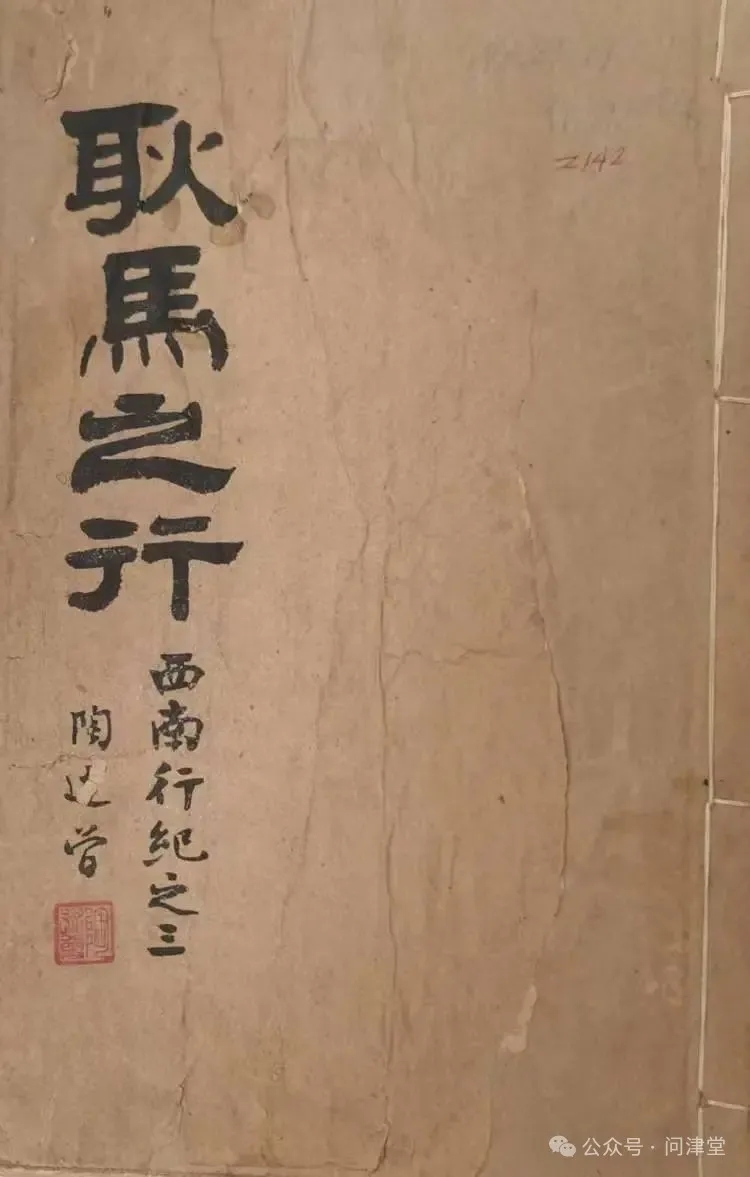 Z142
耿馬之行
西南行紀之三
陶述曾
公众号 · 问津堂